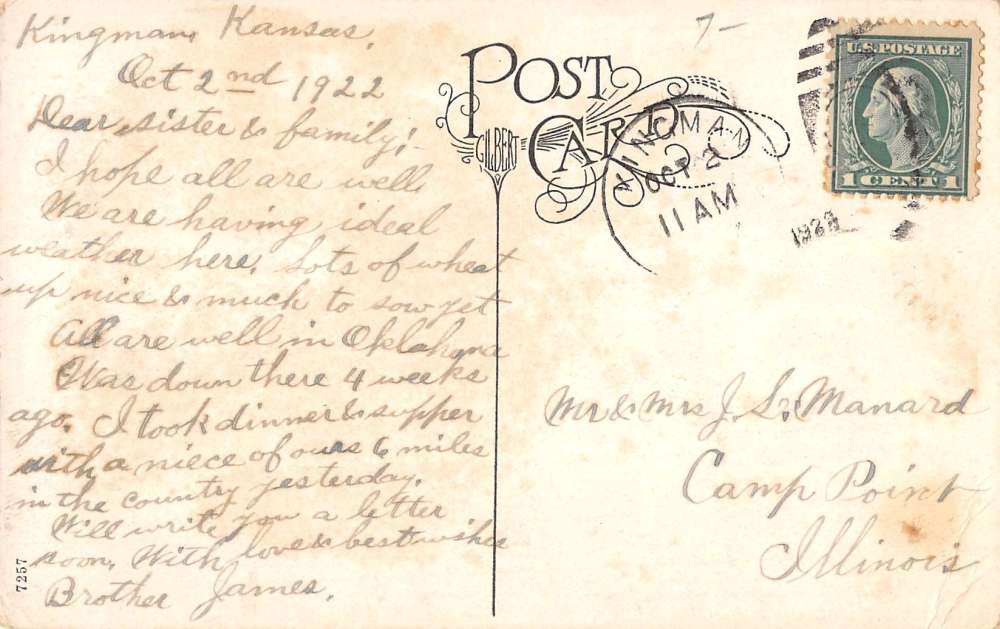 Kingman, Kansas.
Oct 2nd 1922
Dear sister & family;-
I hope all are well.
We are having ideal
weather here. Lots of wheat
up nice & much to sow yet
All are well in Oklahoma
Was down there 4 weeks
ago. I took dinner & supper
with a niece of ours 6 miles
in the country yesterday.
Will write you a letter
soon. With love & best wishes
Brother James.
7257
7-
POST
CARD
GILBERT
KINGMAN
OCT 2
11 AM
1922
U.S. POSTAGE
1 CENT 1
Mr & Mrs J. L. Manard
Camp Point
Illinois